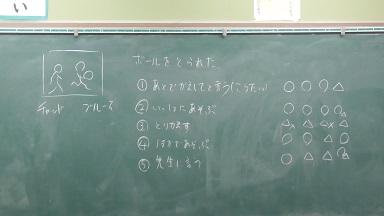 い
ボールをとられた
チャット ブルース
① あとでかえしてと言う(こうたい)
② いっしょにあそぶ
③ とりかえす
④ ほかであそぶ
⑤ 先生に言う